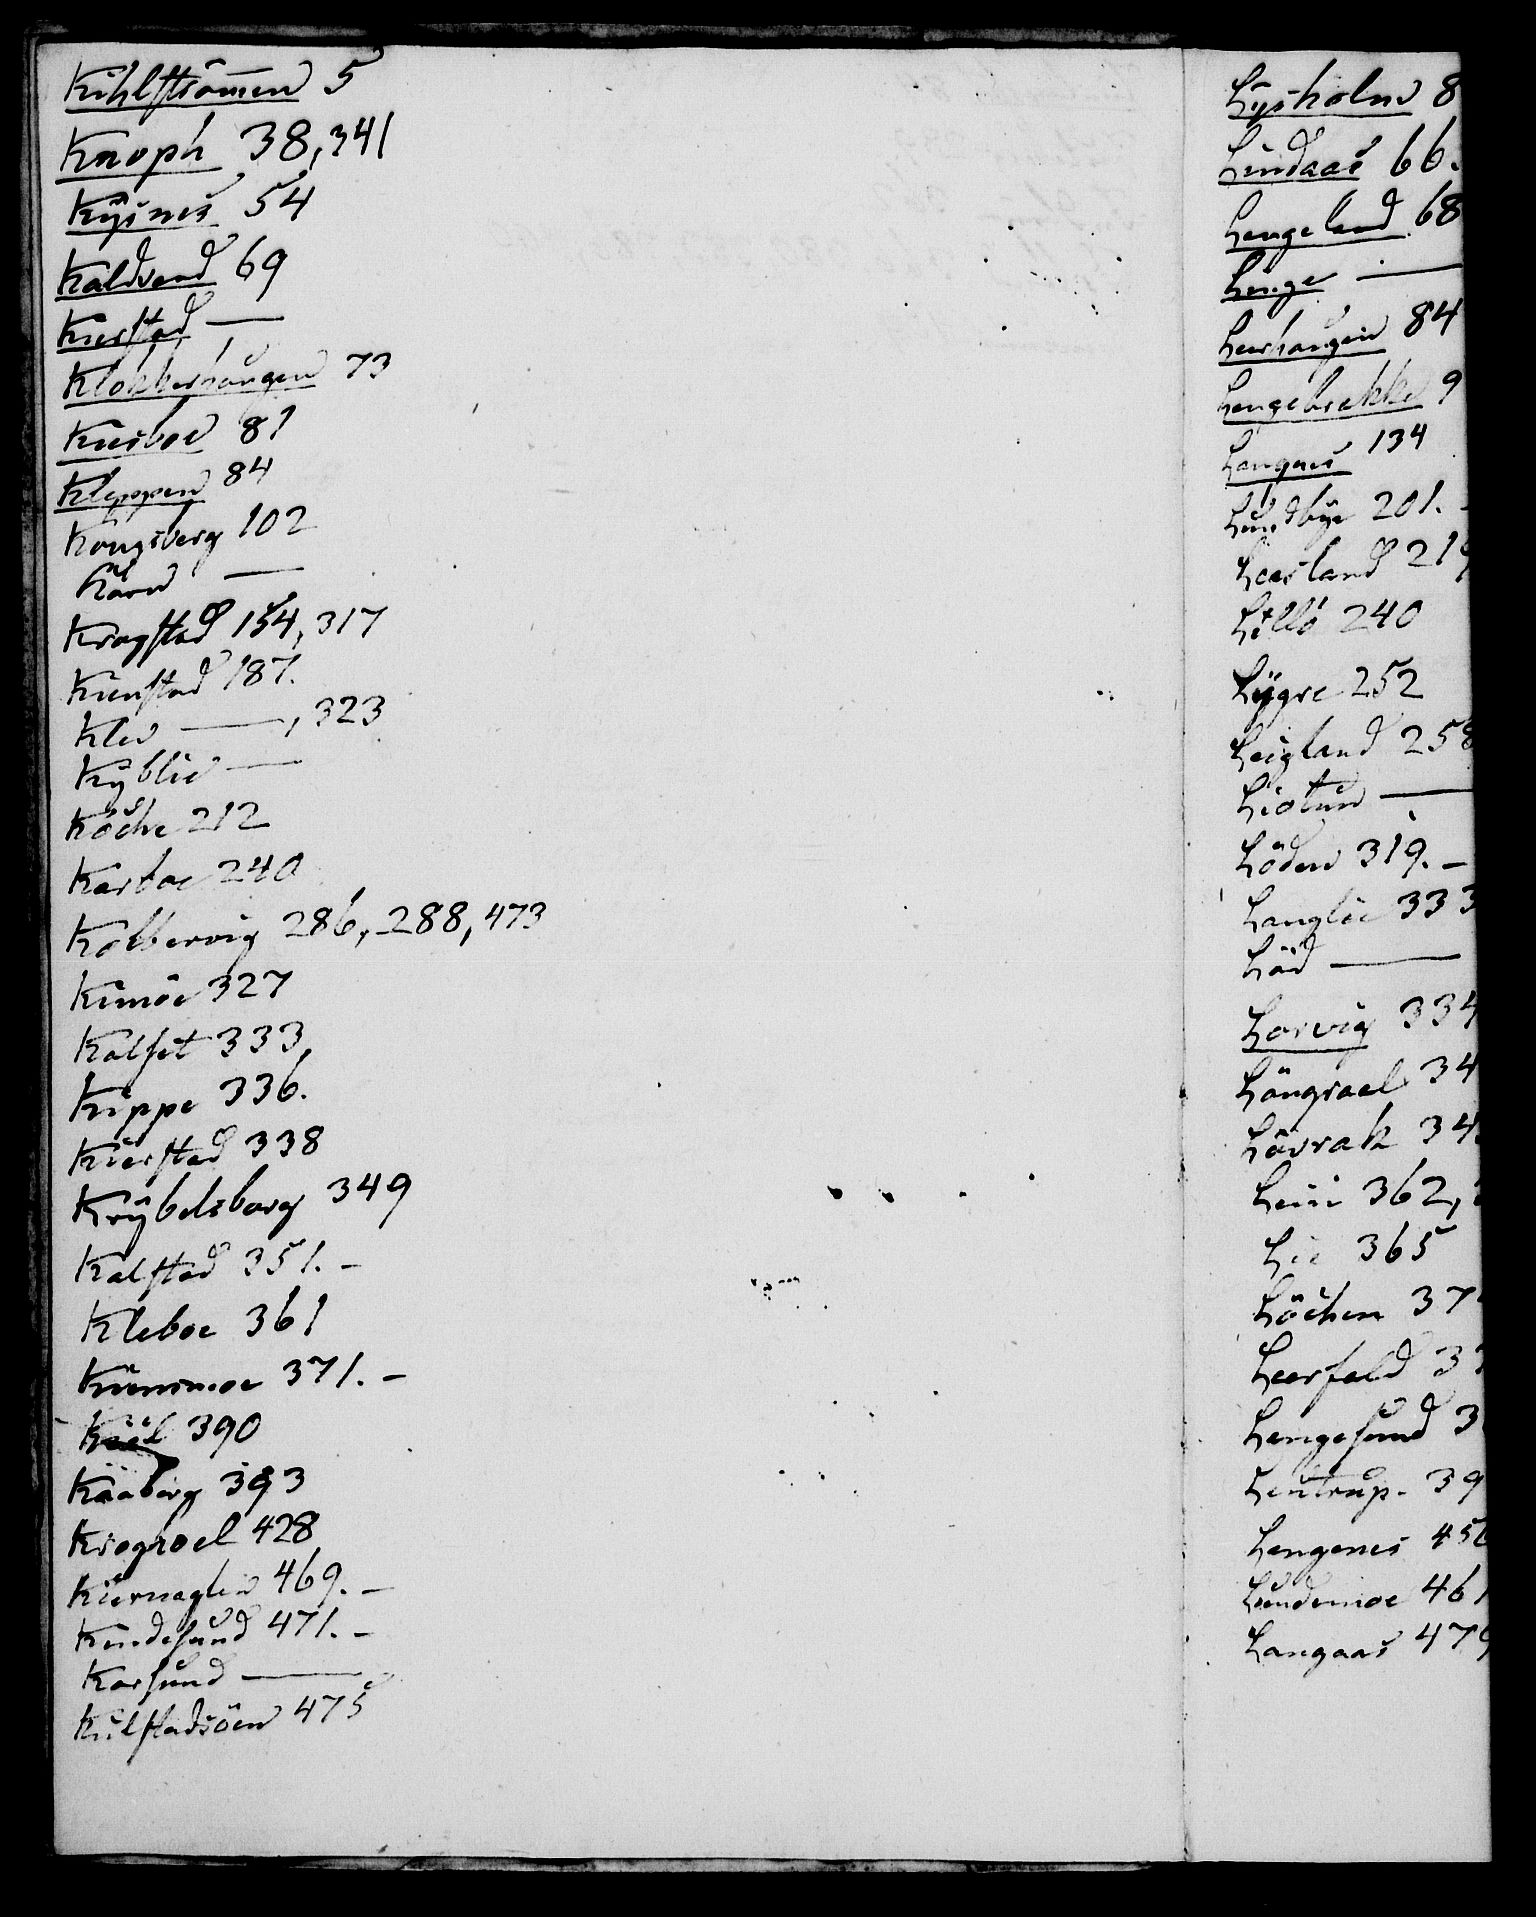 Kihlströmmen 5
Knoph 38, 341
Kysnes 54
Kaldvand 69
Kierstad —
Klokkerhaugen 73
Kiersboe 81
Kleppen 84
Kongsberg 102
Krogstad 154, 317
Kienstad 187.
Klev —, 323
Kyblie —
Köcke 212
Karboe 240
Kolbervig 286, 288, 473
Kimöe 327
Kalset 333
Kippe 336.
Kierstad 338
Krybelsborg 349
Kalstad 351. –
Kleboe 361
Kummoe 371. –
Kiil 390
Kaaberg 393
Krogroel 428
Kiernaglen 469. –
Kindesund 471. –
Karsund —
Kilstadsöen 475
Lysholm 8
Lindaas 66.
Langeland 68
Linge —
Leerhaugen 84
Langebrekke 9
Langnes 134
Lundbye 201. –
Leerland 219
Lillö 240
Lygre 252
Leigland 258
Liotun —
Löden 319. –
Langlie 333
Löd —
Larvig 334
Langrael 34
Lövrak 34
Lein 362,
Lie 365
Löchen 37
Leerfald 3
Langesund 3
Lentrup. 39
Langenes 456
Lundemoe 461
Langaas 479